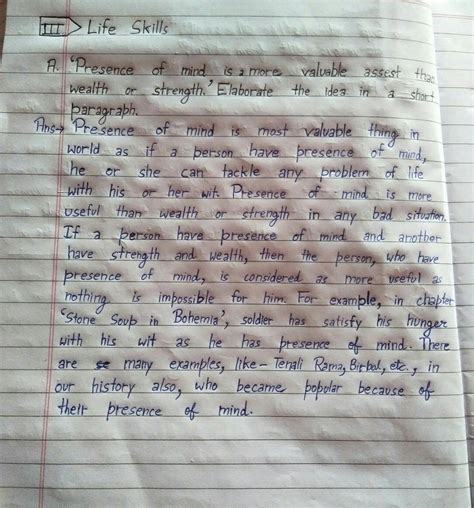 III Life Skills
A. 'Presence of mind is a more valuable assest than
wealth or strength.' Elaborate the idea in a short
paragraph.
Ans→ Presence of mind is most valuable thing in
world as if a person have presence of mind,
he or she can tackle any problem of life
with his or her wit. Presence of mind is more
useful than wealth or strength in any bad situation.
If a person have presence of mind and another
have strength and wealth, then the person, who have
presence of mind, is considered as more useful as
nothing is impossible for him. For example, in chapter
'Stone Soup in Bohemia', soldier has satisfy his hunger
with his wit as he has presence of mind. There
are many examples, like - Tenali Rama, Birbal, etc., in
our history also, who became popular because of
their presence of mind.